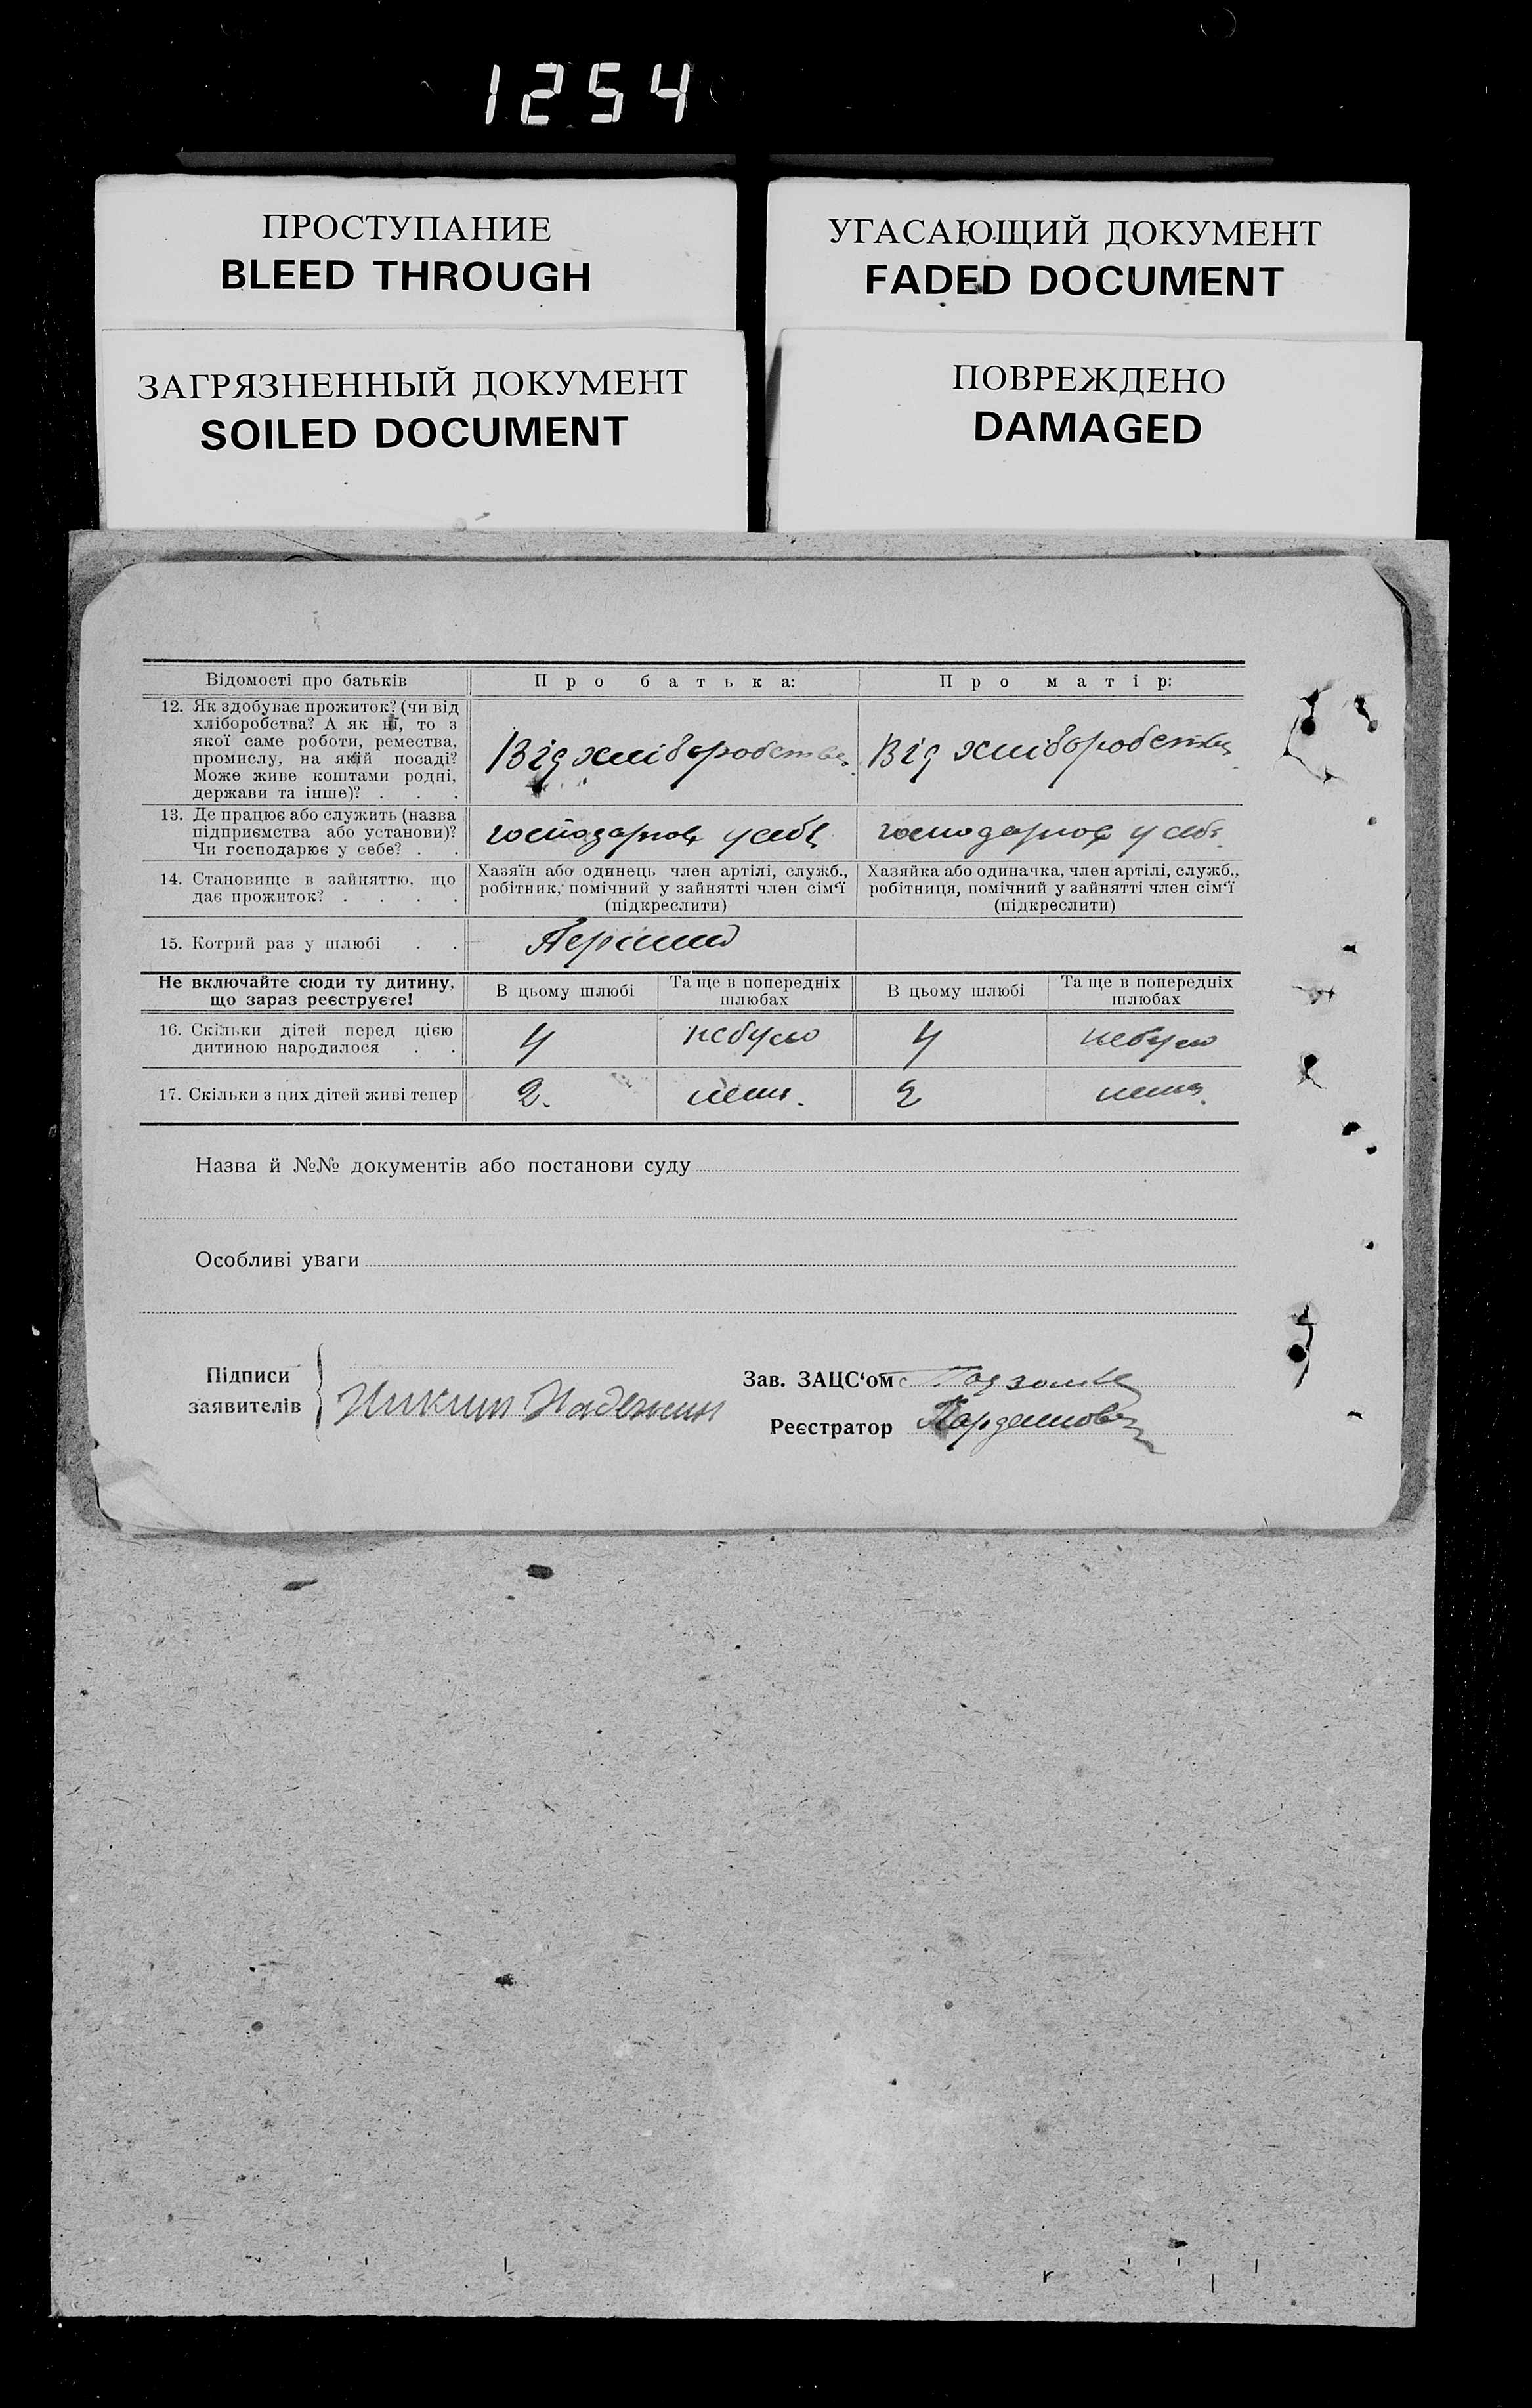 1254
ПРОСТУПАНИЕ
BLEED THROUGH
УГАСАЮЩИЙ ДОКУМЕНТ
FADED DOCUMENT
ЗАГРЯЗНЕННЫЙ ДОКУМЕНТ
SOILED DOCUMENT
ПОВРЕЖДЕНО
DAMAGED
Відомості про батьків
Про батька:
Про матір:
12. Як здобуває прожиток? (чи від
хліборобства? А як ні, то з
якої саме роботи, ремества,
промислу, на якій посаді?
Може живе коштами родні,
держави та інше)? . . .
Від хліборобства
Від хліборобства
13. Де працює або служить (назва
підприємства або установи)?
Чи господарює у себе? . .
господарює у себе
господарює у себе
14. Становище в зайняттю, що
дає прожиток? . . . .
Хазяїн або одинець член артілі, служб.,
робітник, помічний у зайнятті член сім'ї
(підкреслити)
Хазяйка або одиначка, член артілі, служб.,
робітниця, помічний у зайнятті член сім'ї
(підкреслити)
15. Котрий раз у шлюбі . .
Перший
Не включайте сюди ту дитину,
що зараз реєструєте!
В цьому шлюбі
Та ще в попередніх
шлюбах
В цьому шлюбі
Та ще в попередніх
шлюбах
16. Скільки дітей перед цією
дитиною народилося . .
4
небуло
4
небуло
17. Скільки з цих дітей живі тепер
2.
нема.
2
нема.
Назва й №№ документів або постанови суду
Особливі уваги
Підписи
заявителів
Зав. ЗАЦС'ом
Реєстратор